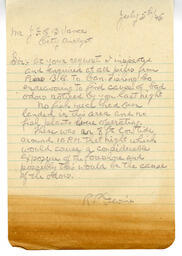 July 5th/46
Mr J. E. B.
City Analyst
Sir: As your request I inspected
and enquired at all piers from
Pier B.C. to Can. Fishing Co.
endeavoring to find cause of bad
odors noticed by you last night
No fish had been
landed in this area and no
fish plants were operating.
There was an 8 ft. low tide
around 10 P.M. that night which
would cause a considerable
exposure of the foreshore and
possibly this would be the cause
of the odors.